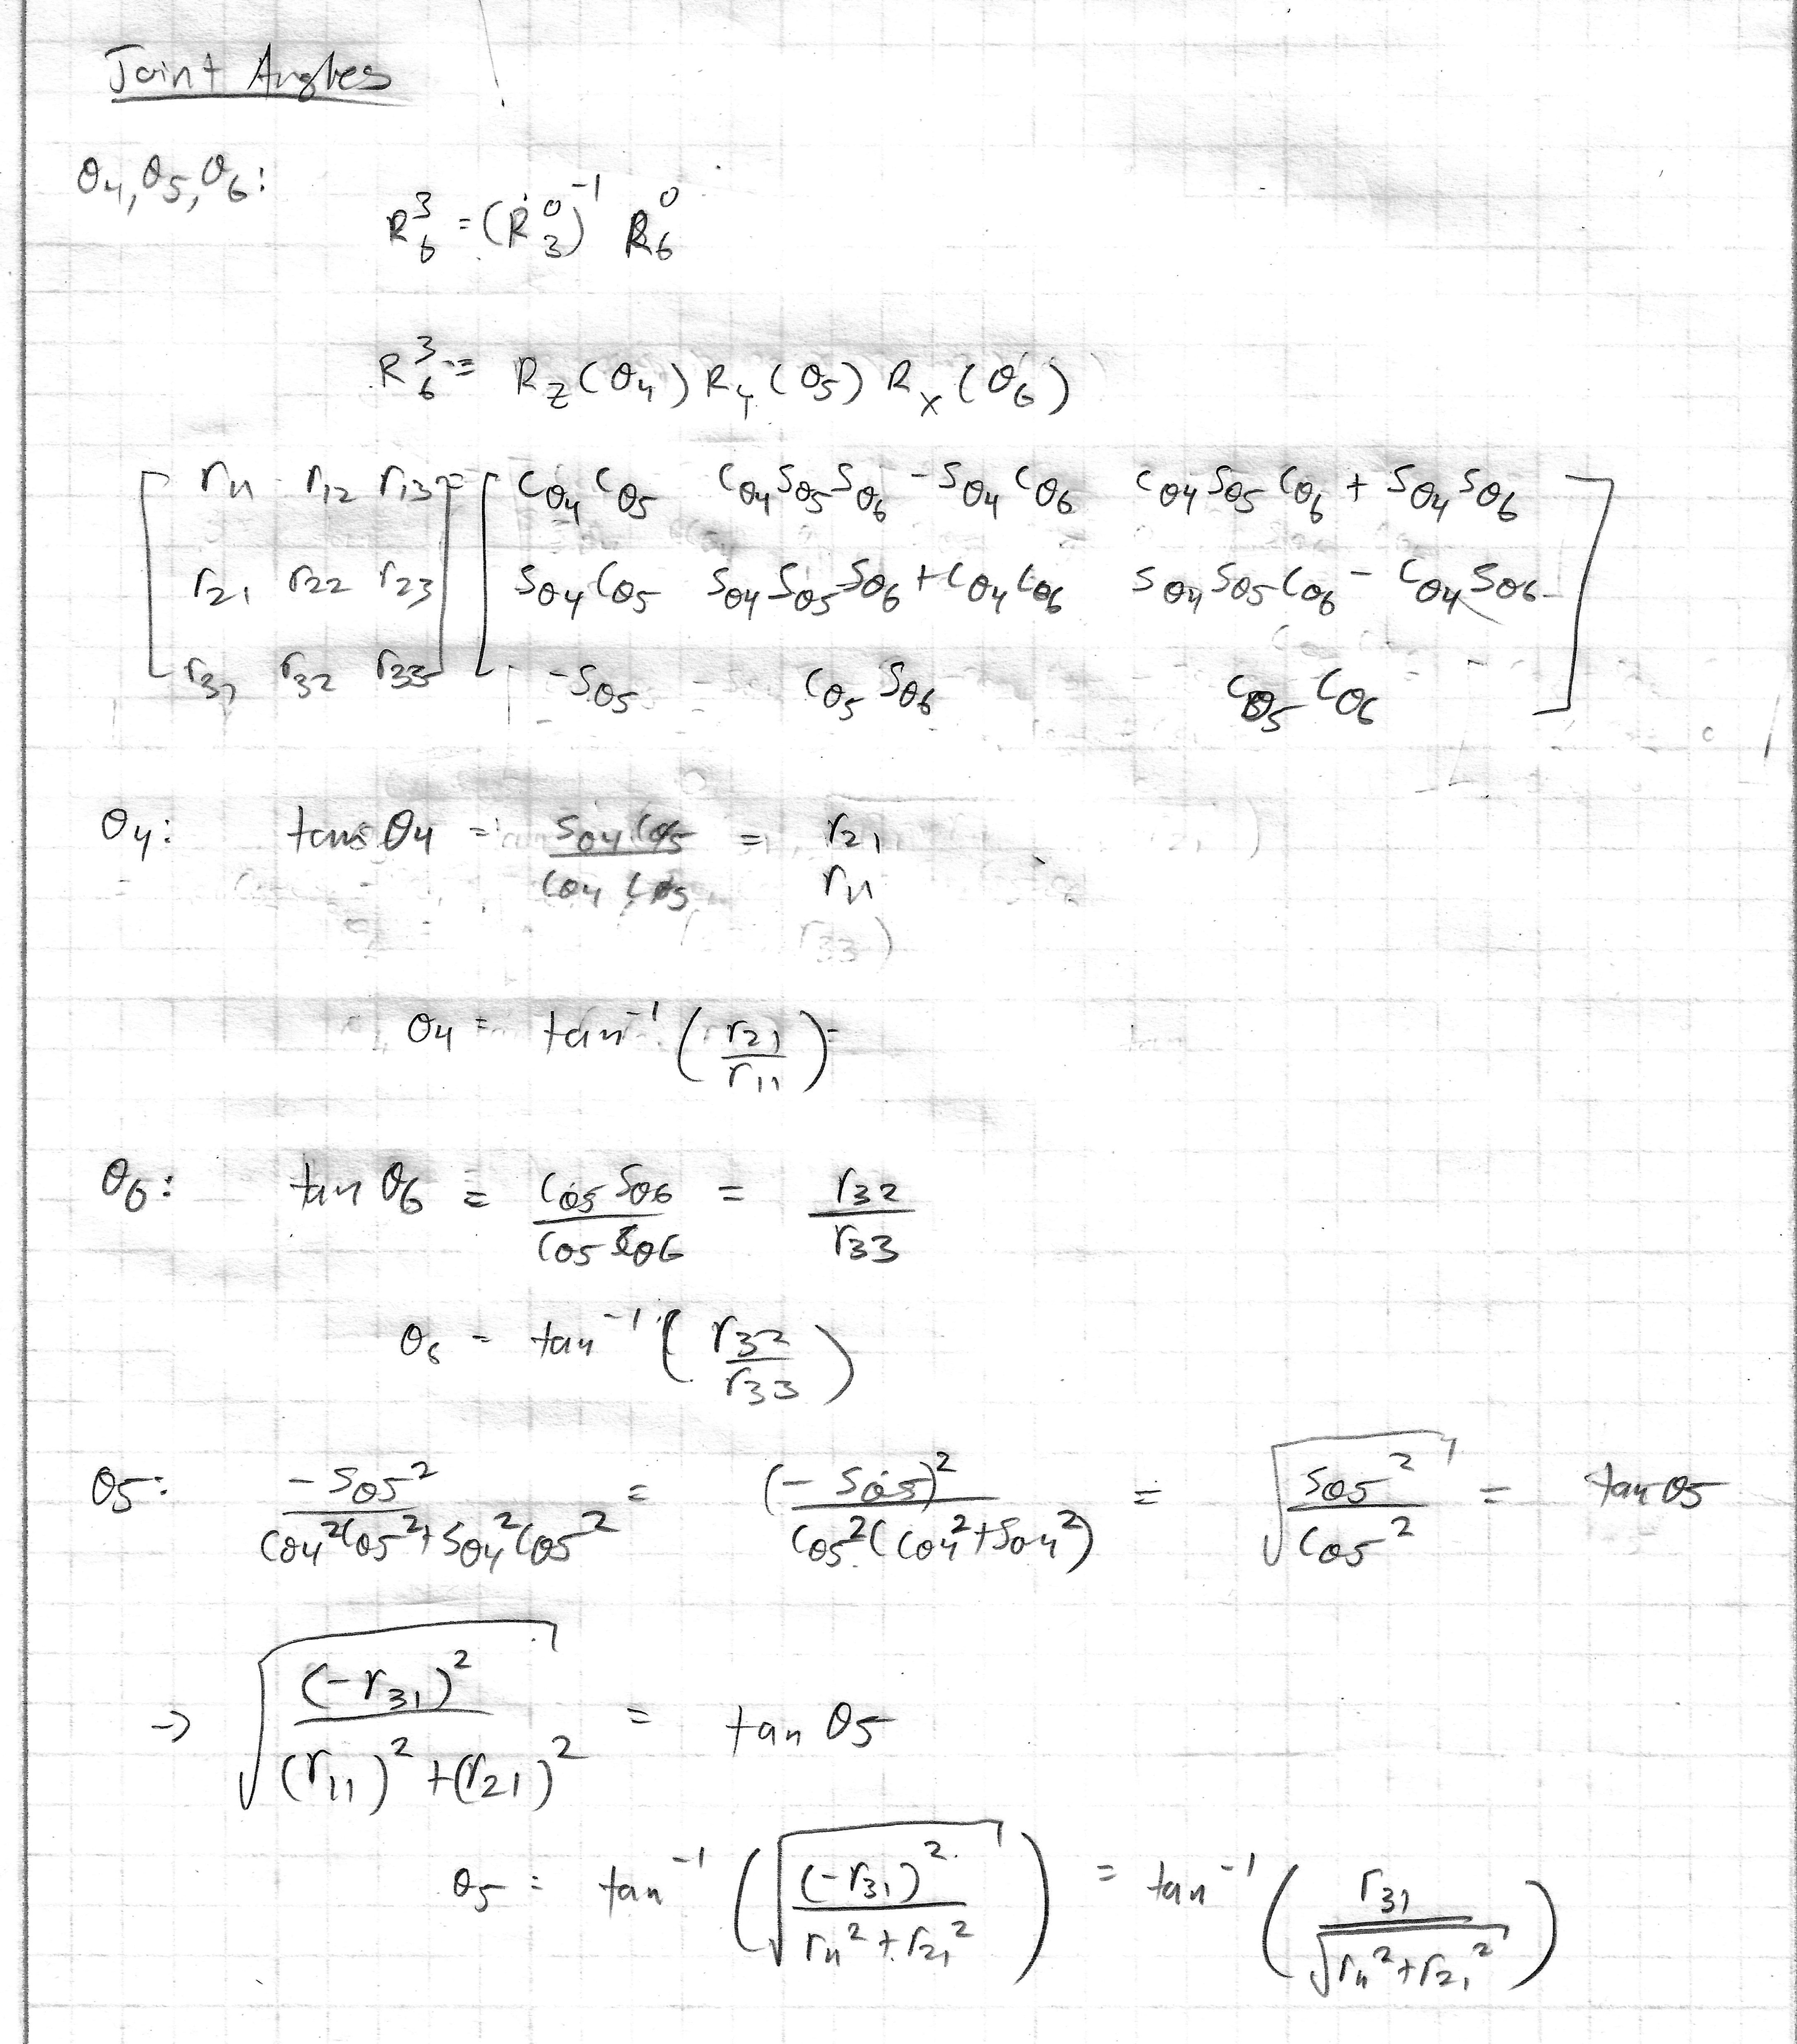 Joint Angles
θ4, θ5, θ6:
R^3_6 = (R^0_3)^-1 R^0_6
R^3_6 = R_Z(θ4) R_Y(θ5) R_X(θ6)
[ r11 r12 r13 ] = [ Cθ4 Cθ5   Cθ4 Sθ5 Sθ6 - Sθ4 Cθ6   Cθ4 Sθ5 Cθ6 + Sθ4 Sθ6 ]
[ r21 r22 r23 ] [ Sθ4 Cθ5   Sθ4 Sθ5 Sθ6 + Cθ4 Cθ6   Sθ4 Sθ5 Cθ6 - Cθ4 Sθ6 ]
[ r31 r32 r33 ] [ -Sθ5   Cθ5 Sθ6   Cθ5 Cθ6 ]
θ4: tan θ4 = (Sθ4 Cθ5)/(Cθ4 Cθ5) = r21 / r11
θ4 = tan^-1 (r21 / r11)
θ6: tan θ6 = (Cθ5 Sθ6)/(Cθ5 Cθ6) = r32 / r33
θ6 = tan^-1 (r32 / r33)
θ5: -Sθ5^2 / (Cθ4^2 Cθ5^2 + Sθ4^2 Cθ5^2) = (-Sθ5)^2 / (Cθ5^2 (Cθ4^2 + Sθ4^2)) = √(Sθ5^2 / Cθ5^2) = tan θ5
→ √((-r31)^2 / ((r11)^2 + (r21)^2)) = tan θ5
θ5 = tan^-1 (√((-r31)^2 / (r11^2 + r21^2))) = tan^-1 (r31 / √(r11^2 + r21^2))